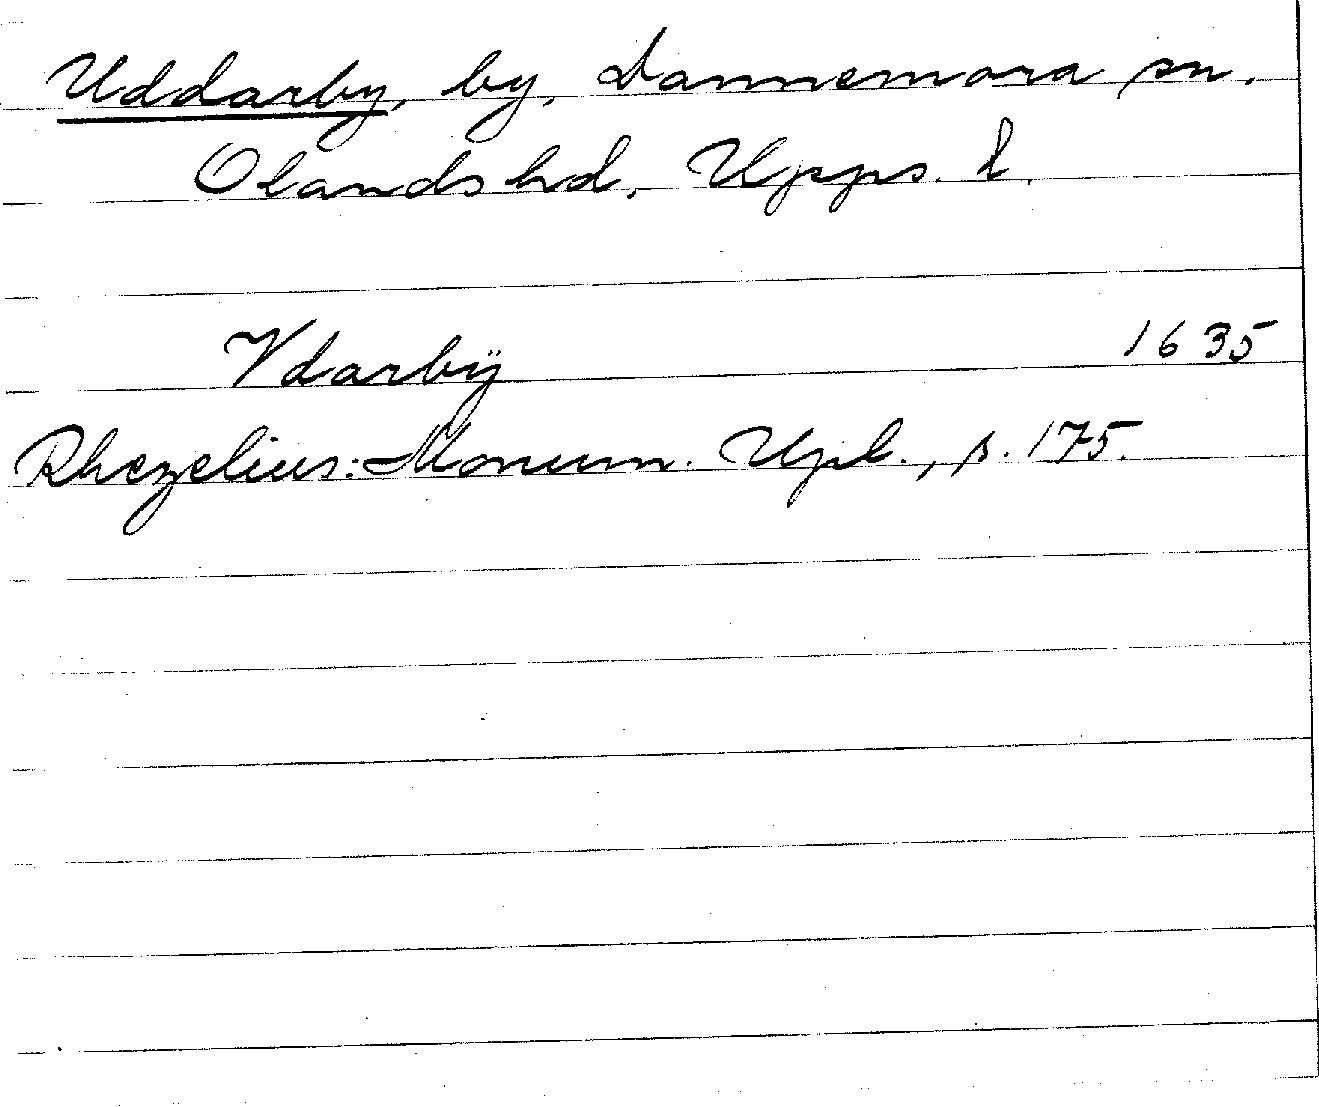 Uddarby, by, Dannemora sn,
Olands hd, Upps. l.
Vdarbÿ 1635
Rhezelius: Monum. Upl., s. 175.